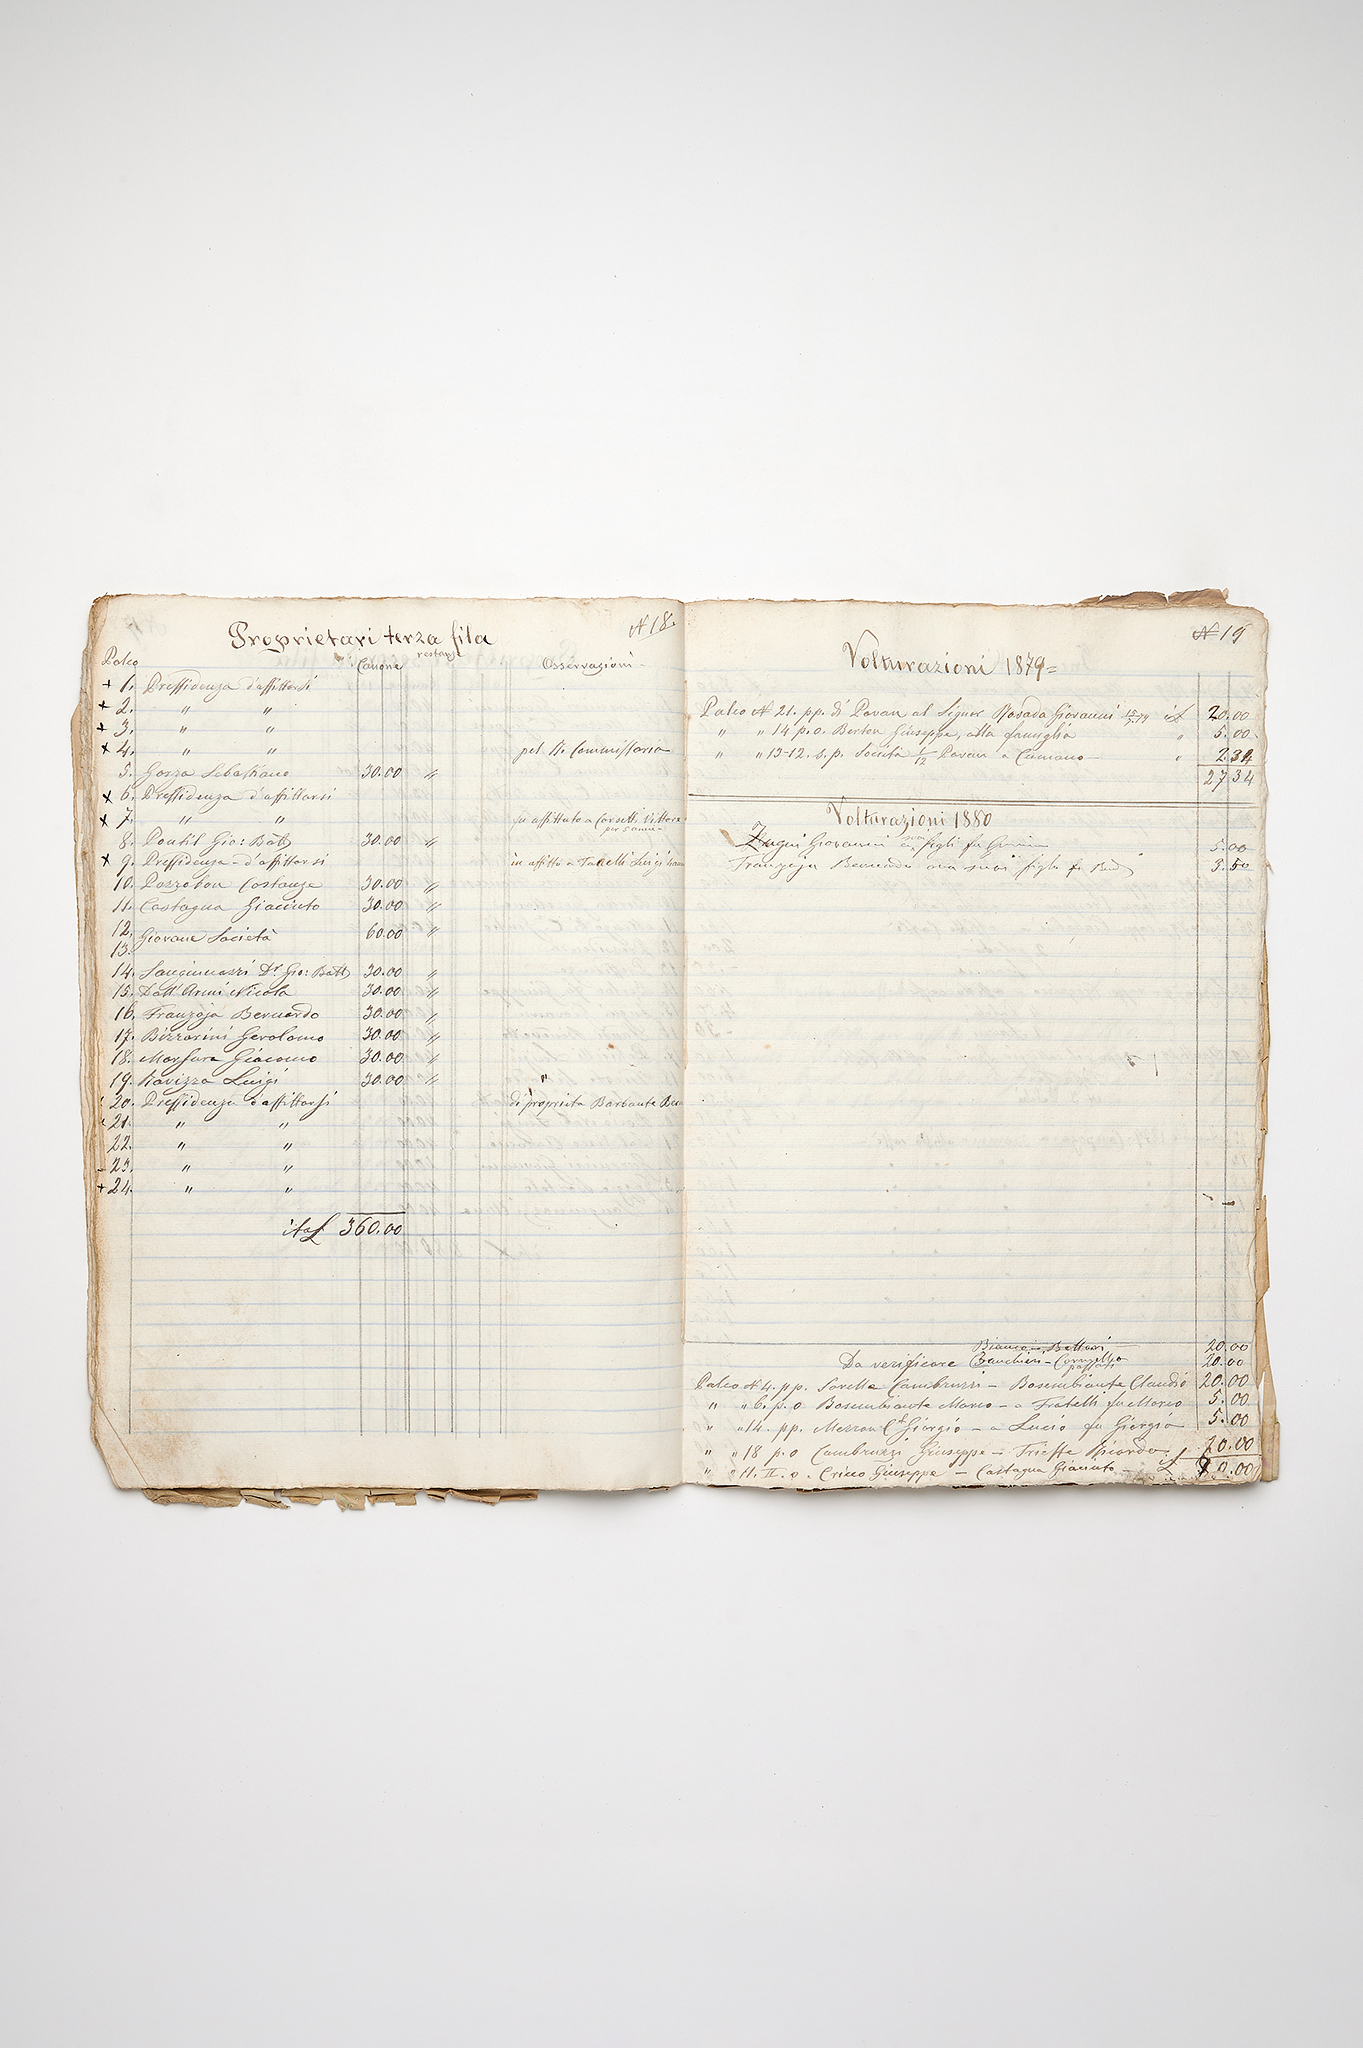 N 18.
Proprietari terza fila
Palco Canone restanze Osservazioni
+ 1. Pressidenza d'affittarsi
x 2. " "
x 3. " "
x 4. " " pel R. Commissario
5. Gosza Sebastiano 30.00 "
x 6. Pressidenza d'affittarsi
x 7. " " fu affittato a Corsetti Vittore
per 5 anni
8. Pontil Gio: Batt 30.00 "
x 9. Pressidenza - d'affittarsi in affitto a Luigi
10. Pozzobon Costanza 30.00 "
11. Castagna Giacinto 30.00 "
12. Giovane Società 60.00 "
13.
14. Sanguinazzi Dr. Gio: Batt 30.00 "
15. Dall'Armi Nicola 30.00 "
16. Franzoja Bernardo 30.00 "
17. Bizzarini Gerolamo 30.00 "
18. Marsura Giacomo 30.00 "
19. Ravizza Luigi 30.00 " "
20. Pressidenza d'affittarsi di proprietà Barbante
21. " "
22. " "
23. " "
+ 24. " "
ital 360.00
N 19
Volturazioni 1879=
Palco N 21. pp. di Pavan al Signor Rosada Giovanni 20.00
" " 14 p.o. Berton Giuseppe, alla famiglia " 5.00
" " 13-12. s.p. Società 1/12 Pavan a Cumano " 2.34
27.34
Volturazioni 1880
Zugni Giovanni suoi figli fu 5.00
Franzoja Bernardo ora suoi figli fu 3.50
20.00
Da verificare 20.00
Palco N 4. pp. Sorelle Cambruzzi - Bosembiante Claudio 20.00
" " 6. p.o Bosembiante Mario - a Fratelli fu Mario 5.00
" " 14. pp. Giorgio - a Lucio fu Giorgio 5.00
" " 18 p.o Cambruzzi Giuseppe - Trieste 20.00
" " 11. II. o. Crico Giuseppe - Castagna Giacinto